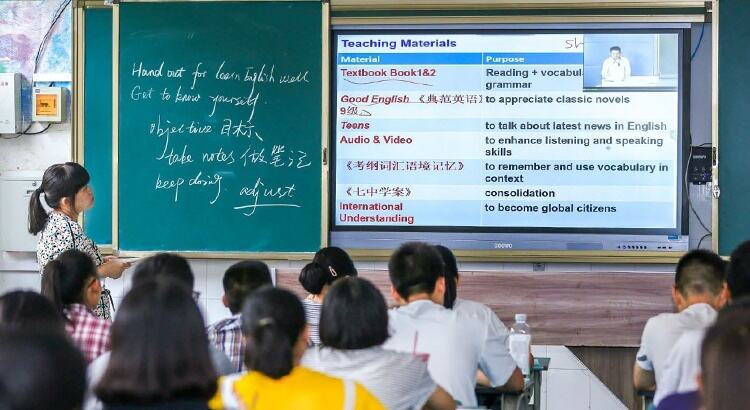 Hand out for learn English well
Get to know yourself.
objective 目标
take notes 做笔记
keep doing. adjust
Teaching Materials
Material Purpose
Textbook Book1&2 Reading + vocabul
grammar
Good English 《典范英语》 to appreciate classic novels
9级
Teens to talk about latest news in English
Audio & Video to enhance listening and speaking
skills
《考纲词汇语境记忆》 to remember and use vocabulary in
context
《七中学案》 consolidation
International to become global citizens
Understanding